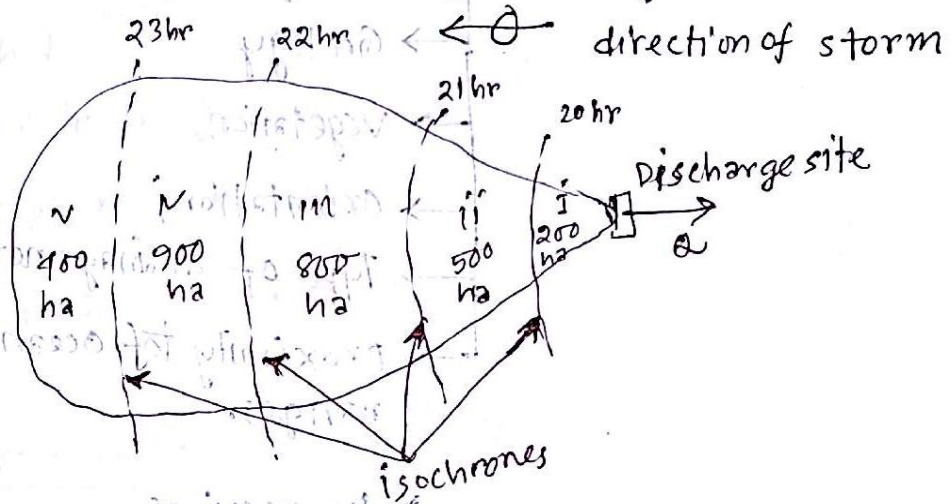 23hr
22hr
direction of storm
21hr
20hr
Discharge site
V
400
ha
IV
900
ha
III
800
ha
ii
500
ha
I
200
ha
Q
isochrones